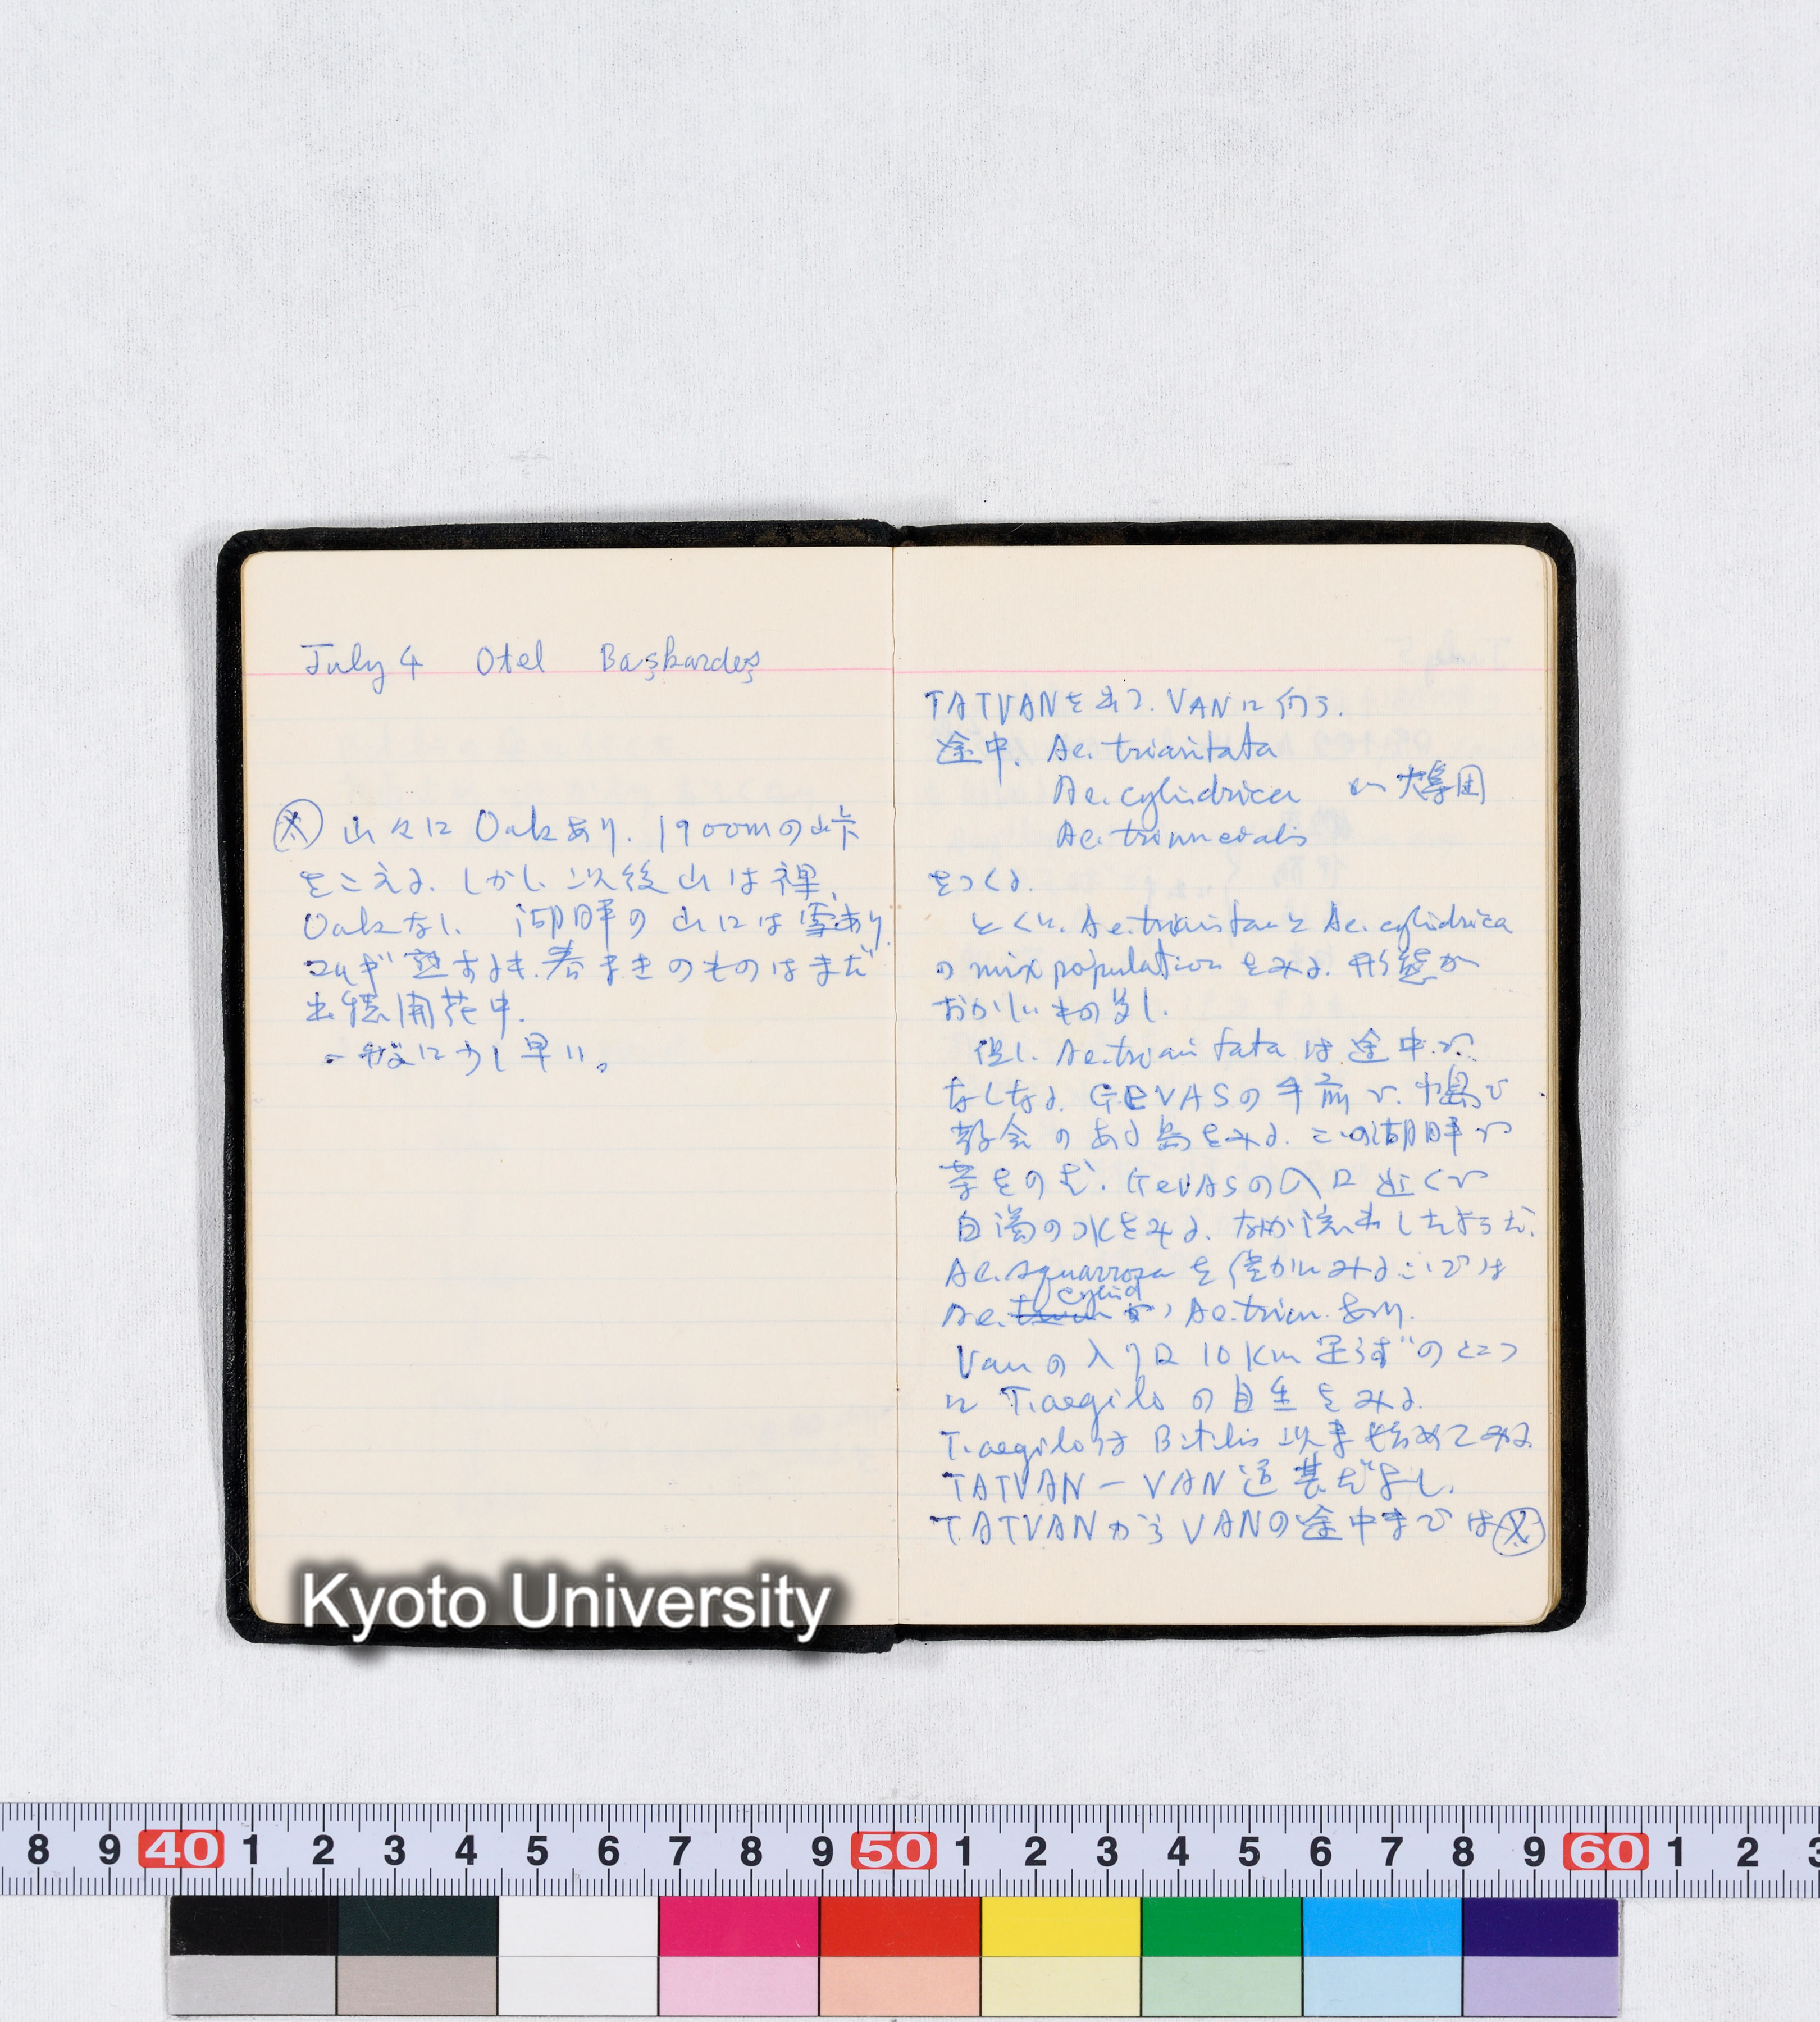 July 4 Otel Başkardeş
Ⓧ 山々に Oakあり. 1900mの峠
をこえる. しかし 以後山は裸,
Oakなし. 湖畔の山には雪あり.
コムギ熟するも. 春まきのものはまだ
出穂開花中.
一般に少し早い。
TATVANを出て. VANに向う.
途中. Ae. triaristata
Ae. cylindrica が大集団
Ae. triuncialis
をつくる.
とくに. Ae. triaristaと Ae. cylindrica
の mix populationをみる. 形態が
おかしいもの多し.
但し. Ae. triaristataは途中で
なくなる. GEVASの手前で. 中島で
教会のある島をみる. この湖畔で
茶をのむ. GeVASの入口近くで
白濁の水をみる. なにか流出したようだ.
Ae. squarrosaを僅かにみる ここでは
Ae. cylind が, Ae. triun. あり.
Vanの入り口 10 Km 足らずのところ
に T. aegiloの自生をみる.
T. aegiloは Bitlis 以来始めてみる
TATVAN - VAN 道甚だよし.
TATVANから VANの途中までは Ⓧ
Kyoto University
8 9 40 1 2 3 4 5 6 7 8 9 50 1 2 3 4 5 6 7 8 9 60 1 2 3